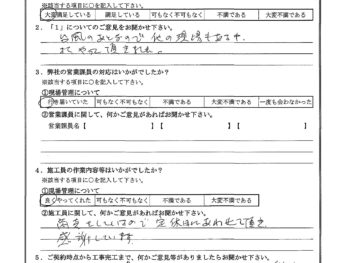 ※該当する項目に○を記入して下さい。
大変満足している 満足している 可もなく不可もなく 不満である 大変不満である
2.「1」についてのご意見をお聞かせ下さい。
台風のあとなので他の現場もある中、
よくやって頂きました。
3.弊社の営業課員の対応はいかがでしたか?
※該当する項目に○を記入して下さい。
①現場管理について
行き届いていた 可もなく不可もなく 不満である 大変不満である 一度も会わなかった
②営業課員に関して、何かご意見があればお聞かせ下さい。
営業課員名【 】【 】【 】
4.施工員の作業内容等はいかがでしたか?
※該当する項目に○を記入して下さい。
①現場管理について
良くやってくれた 可もなく不可もなく 不満である 大変不満である
②施工員に関して、何かご意見があればお聞かせ下さい。
定休日にあわせて頂き
感謝しています
5.ご契約時点から工事完工まで、何かご意見等がありましたらお聞かせ下さい。